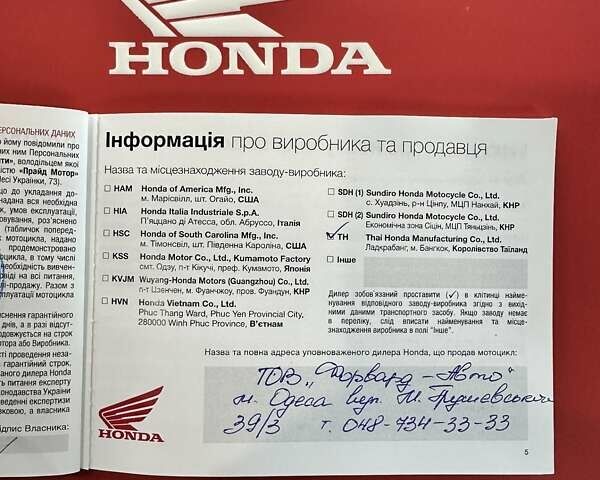 HONDA
ЕРСОНАЛЬНИХ ДАНИХ
о йому повідомили про
них ним Персональних
ти», володільцем якої
істю «Прайд Мотор»
Лесі Українки, 73).
що до укладання до-
надана вся необхідна
умов експлуатації,
овування, роз'яснено
(табличок поперед-
мотоцикла, надано
продемонстровано
оцикла, в тому числі
необхідність вивчен-
віді на всі питання,
ді-продажу. Разом з
плуатації мотоцикла
яснення гарантійного
днів, а в разі відсут-
довжується на строк
тора або Виробника.
сті проведення неза-
гарантійний строк,
аного дилера Honda
ть питання експерту
онодавства України
еденні експертизи
ковою, а власника
ідпис Власника:
Інформація про виробника та продавця
Назва та місцезнаходження заводу-виробника:
HAM Honda of America Mfg., Inc.
м. Марісвілл, шт. Огайо, США
HIA Honda Italia Industriale S.p.A.
П'яццано ді Атесса, обл. Абруссо, Італія
HSC Honda of South Carolina Mfg., Inc.
м. Тімонсвіл, шт. Південна Кароліна, США
KSS Honda Motor Co., Ltd., Kumamoto Factory
смт. Одзу, п-т Кікучі, преф. Кумамото, Японія
KVJM Wuyang-Honda Motors (Guangzhou) Co., Ltd.
п-т Цзенчен, м. Фуанчжоу, пров. Фуандун, КНР
HVN Honda Vietnam Co., Ltd.
Phuc Thang Ward, Phuc Yen Provincial City,
280000 Winh Phuc Province, В'єтнам
SDH (1) Sundiro Honda Motocycle Co., Ltd.
с. Хуадзінь, р-н Цінпу, МЦП Нанхай, КНР
SDH (2) Sundiro Honda Motocycle Co., Ltd.
Економічна зона Сіцін, МЦП Тяньцзінь, КНР
✓ TH Thai Honda Manufacturing Co., Ltd.
Ладкрабанг, м. Бангкок, Королівство Таїланд
Інше
Дилер зобов'язаний проставити (✓) в клітинці найме-
нування відповідного заводу-виробника згідно з вихід-
ними даними транспортного засобу. Якщо заводу немає
в переліку, слід вписати найменування та місце-
знаходження виробника в полі "Інше".
Назва та повна адреса уповноваженого дилера Honda, що продав мотоцикл:
ТОВ „Форвард-Авто"
м. Одеса вул. М. Грушевський
39/3 т. 048-734-33-33
HONDA
5